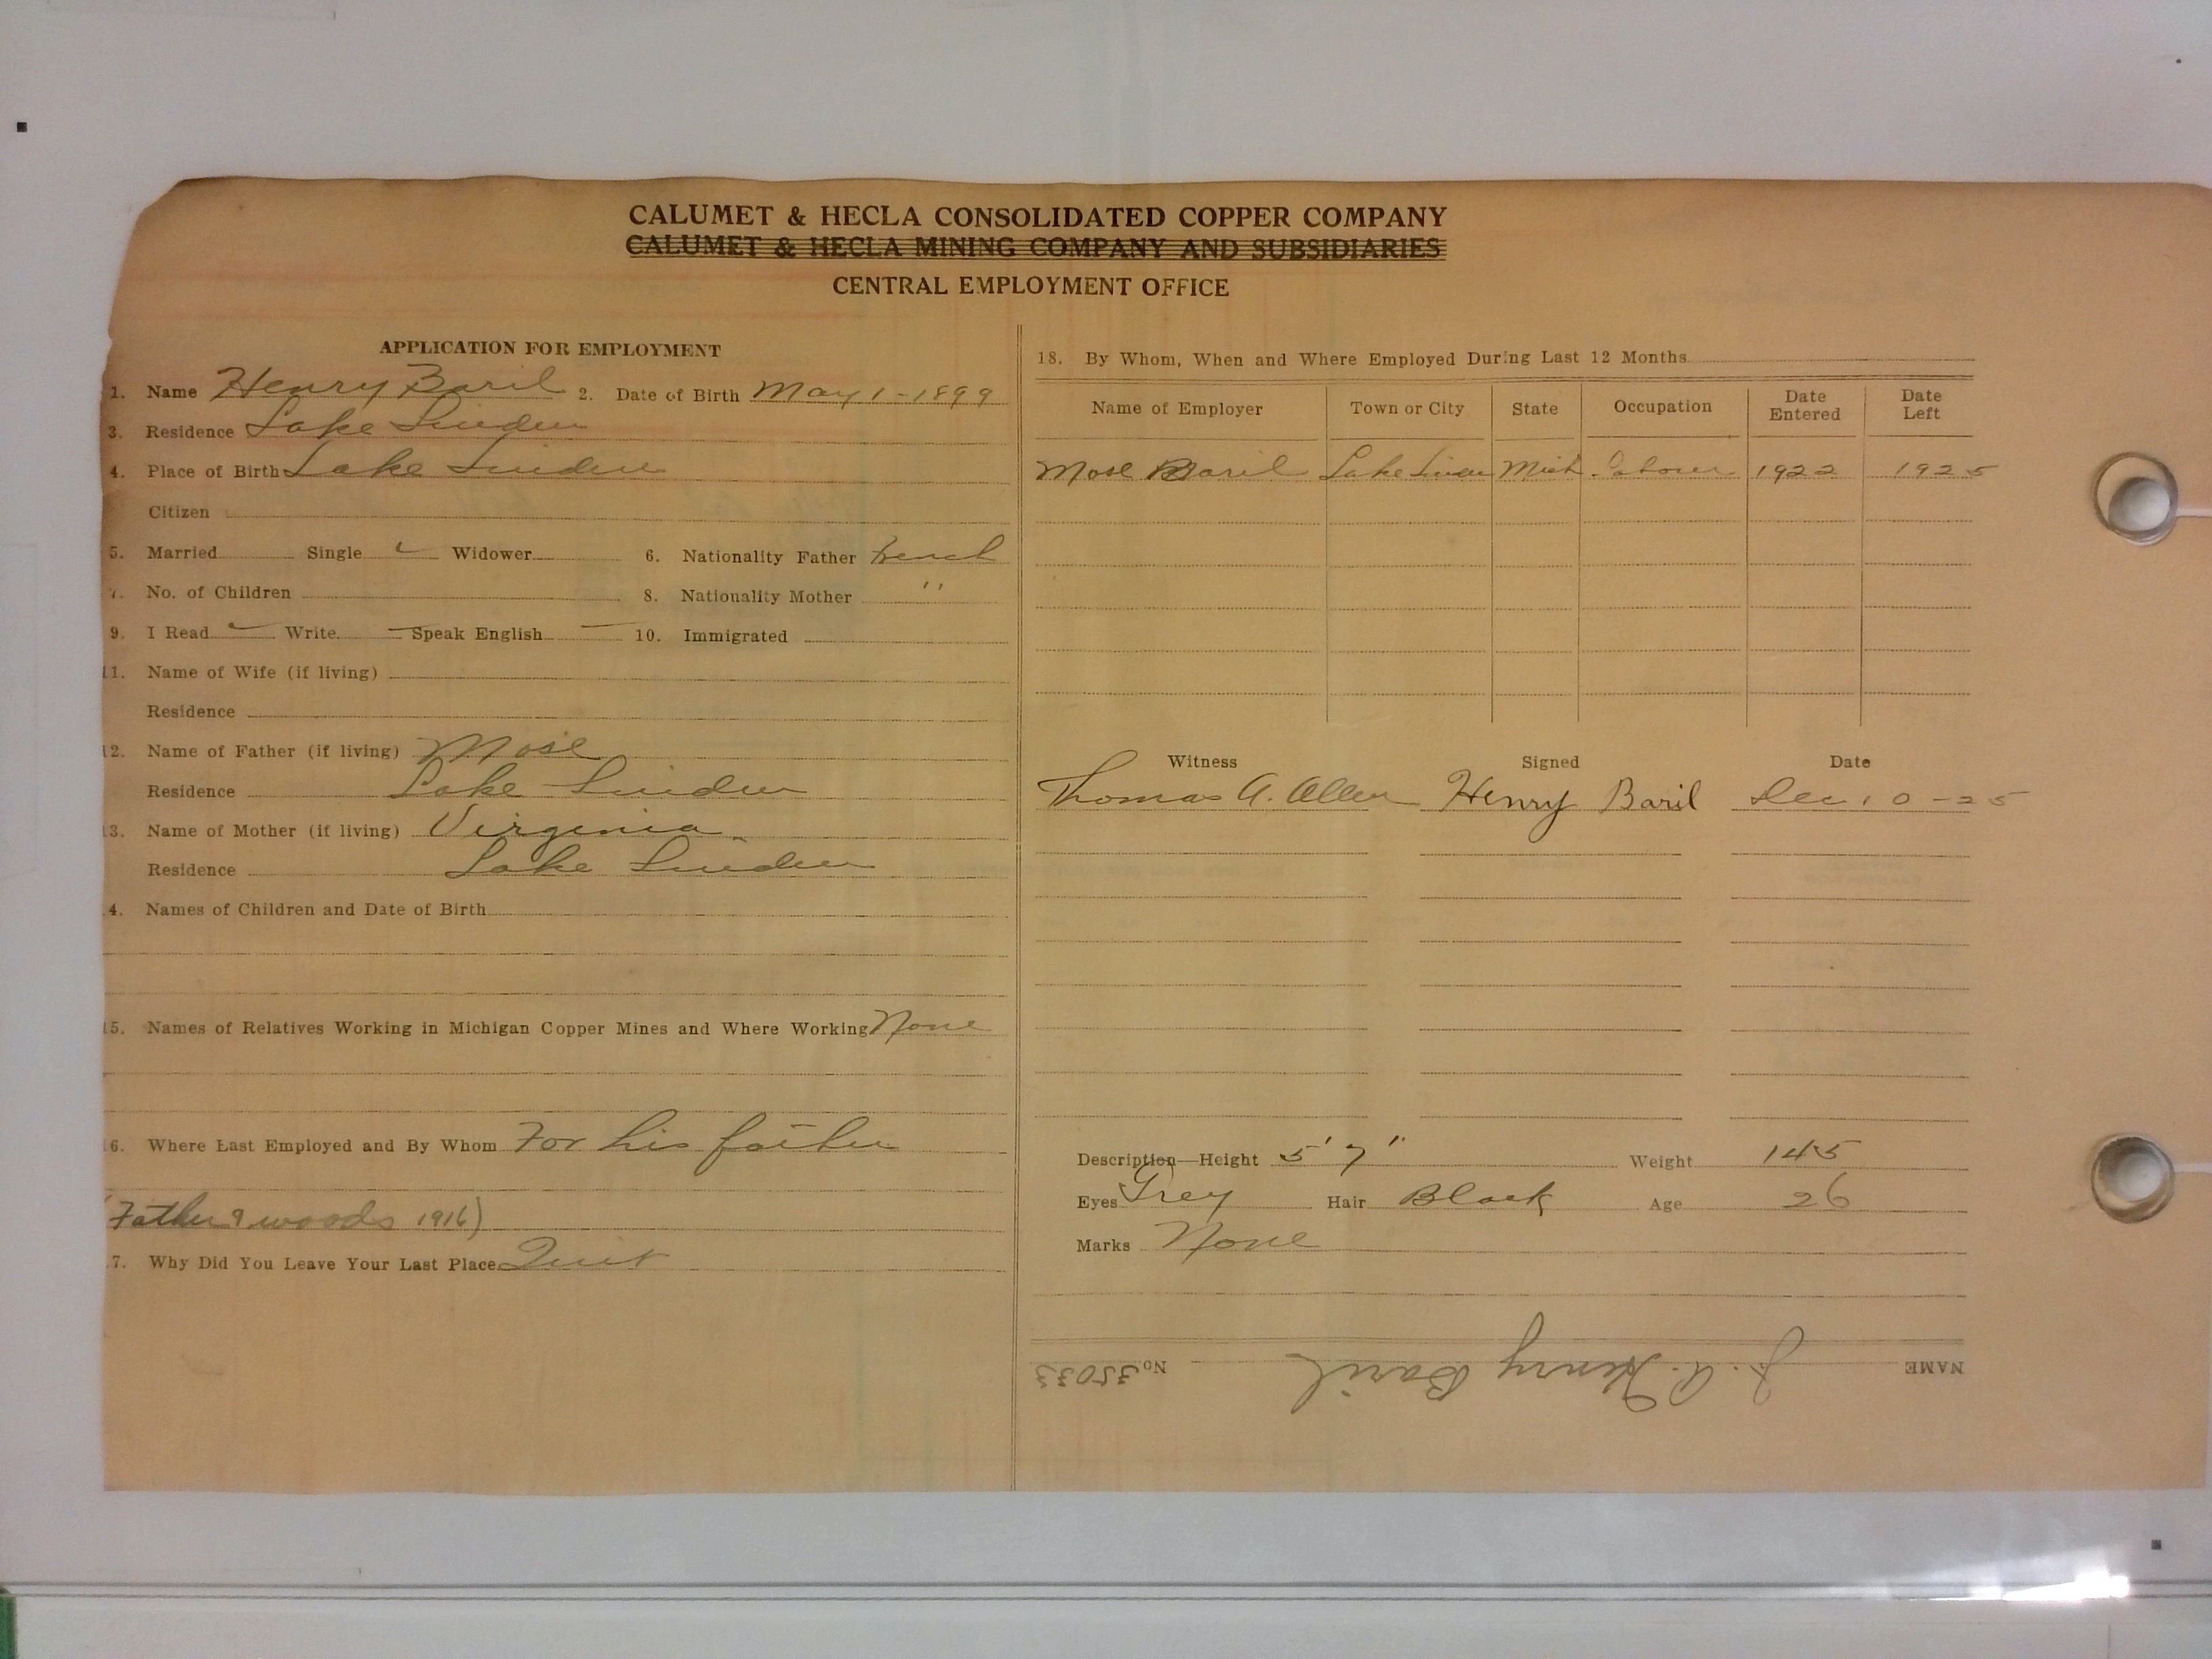 CALUMET & HECLA CONSOLIDATED COPPER COMPANY
CALUMET & HECLA MINING COMPANY AND SUBSIDIARIES
CENTRAL EMPLOYMENT OFFICE
APPLICATION FOR EMPLOYMENT
1. Name Henry Baril 2. Date of Birth May 1-1899
3. Residence Lake Linden
4. Place of Birth Lake Linden
Citizen
5. Married Single ✓ Widower 6. Nationality Father French
7. No. of Children 8. Nationality Mother "
9. I Read ✓ Write — Speak English — 10. Immigrated
11. Name of Wife (if living)
Residence
12. Name of Father (if living) Mose
Residence Lake Linden
13. Name of Mother (if living) Virginia
Residence Lake Linden
4. Names of Children and Date of Birth
15. Names of Relatives Working in Michigan Copper Mines and Where Working None
16. Where Last Employed and By Whom For his father
(Father & woods 1916)
7. Why Did You Leave Your Last Place Quit
18. By Whom, When and Where Employed During Last 12 Months
Name of Employer Town or City State Occupation Date Entered Date Left
Mose Baril Lake Linden Mich Labour 1922 1925
Witness Signed Date
Thomas A. Allen Henry Baril Dec 10-25
Description—Height 5' 7" Weight 145
Eyes Grey Hair Black Age 26
Marks None
NAME J. A. Henry Baril No. 35033